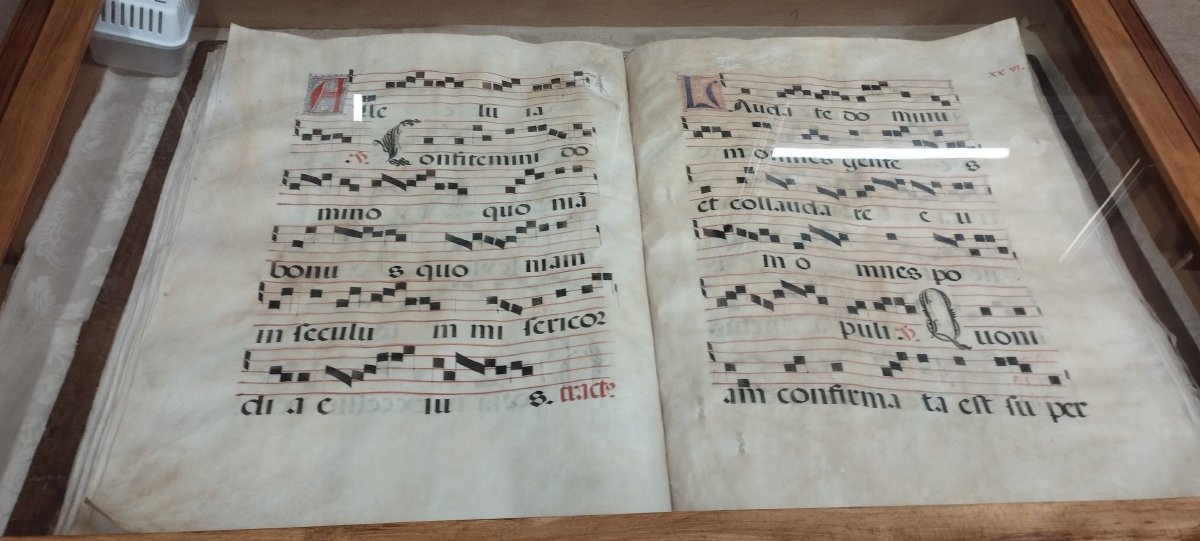 Alle lu ia
℣. Confitemini do
mino quo niā
bonu s quo niam
in seculu m mi sericor
di a e iu s. tract⁹
xxvi.
LAuda te do minu
m omnes gente s
et collauda te e u
m o mnes po
puli. ℣. Quoni
am confirma ta est su per